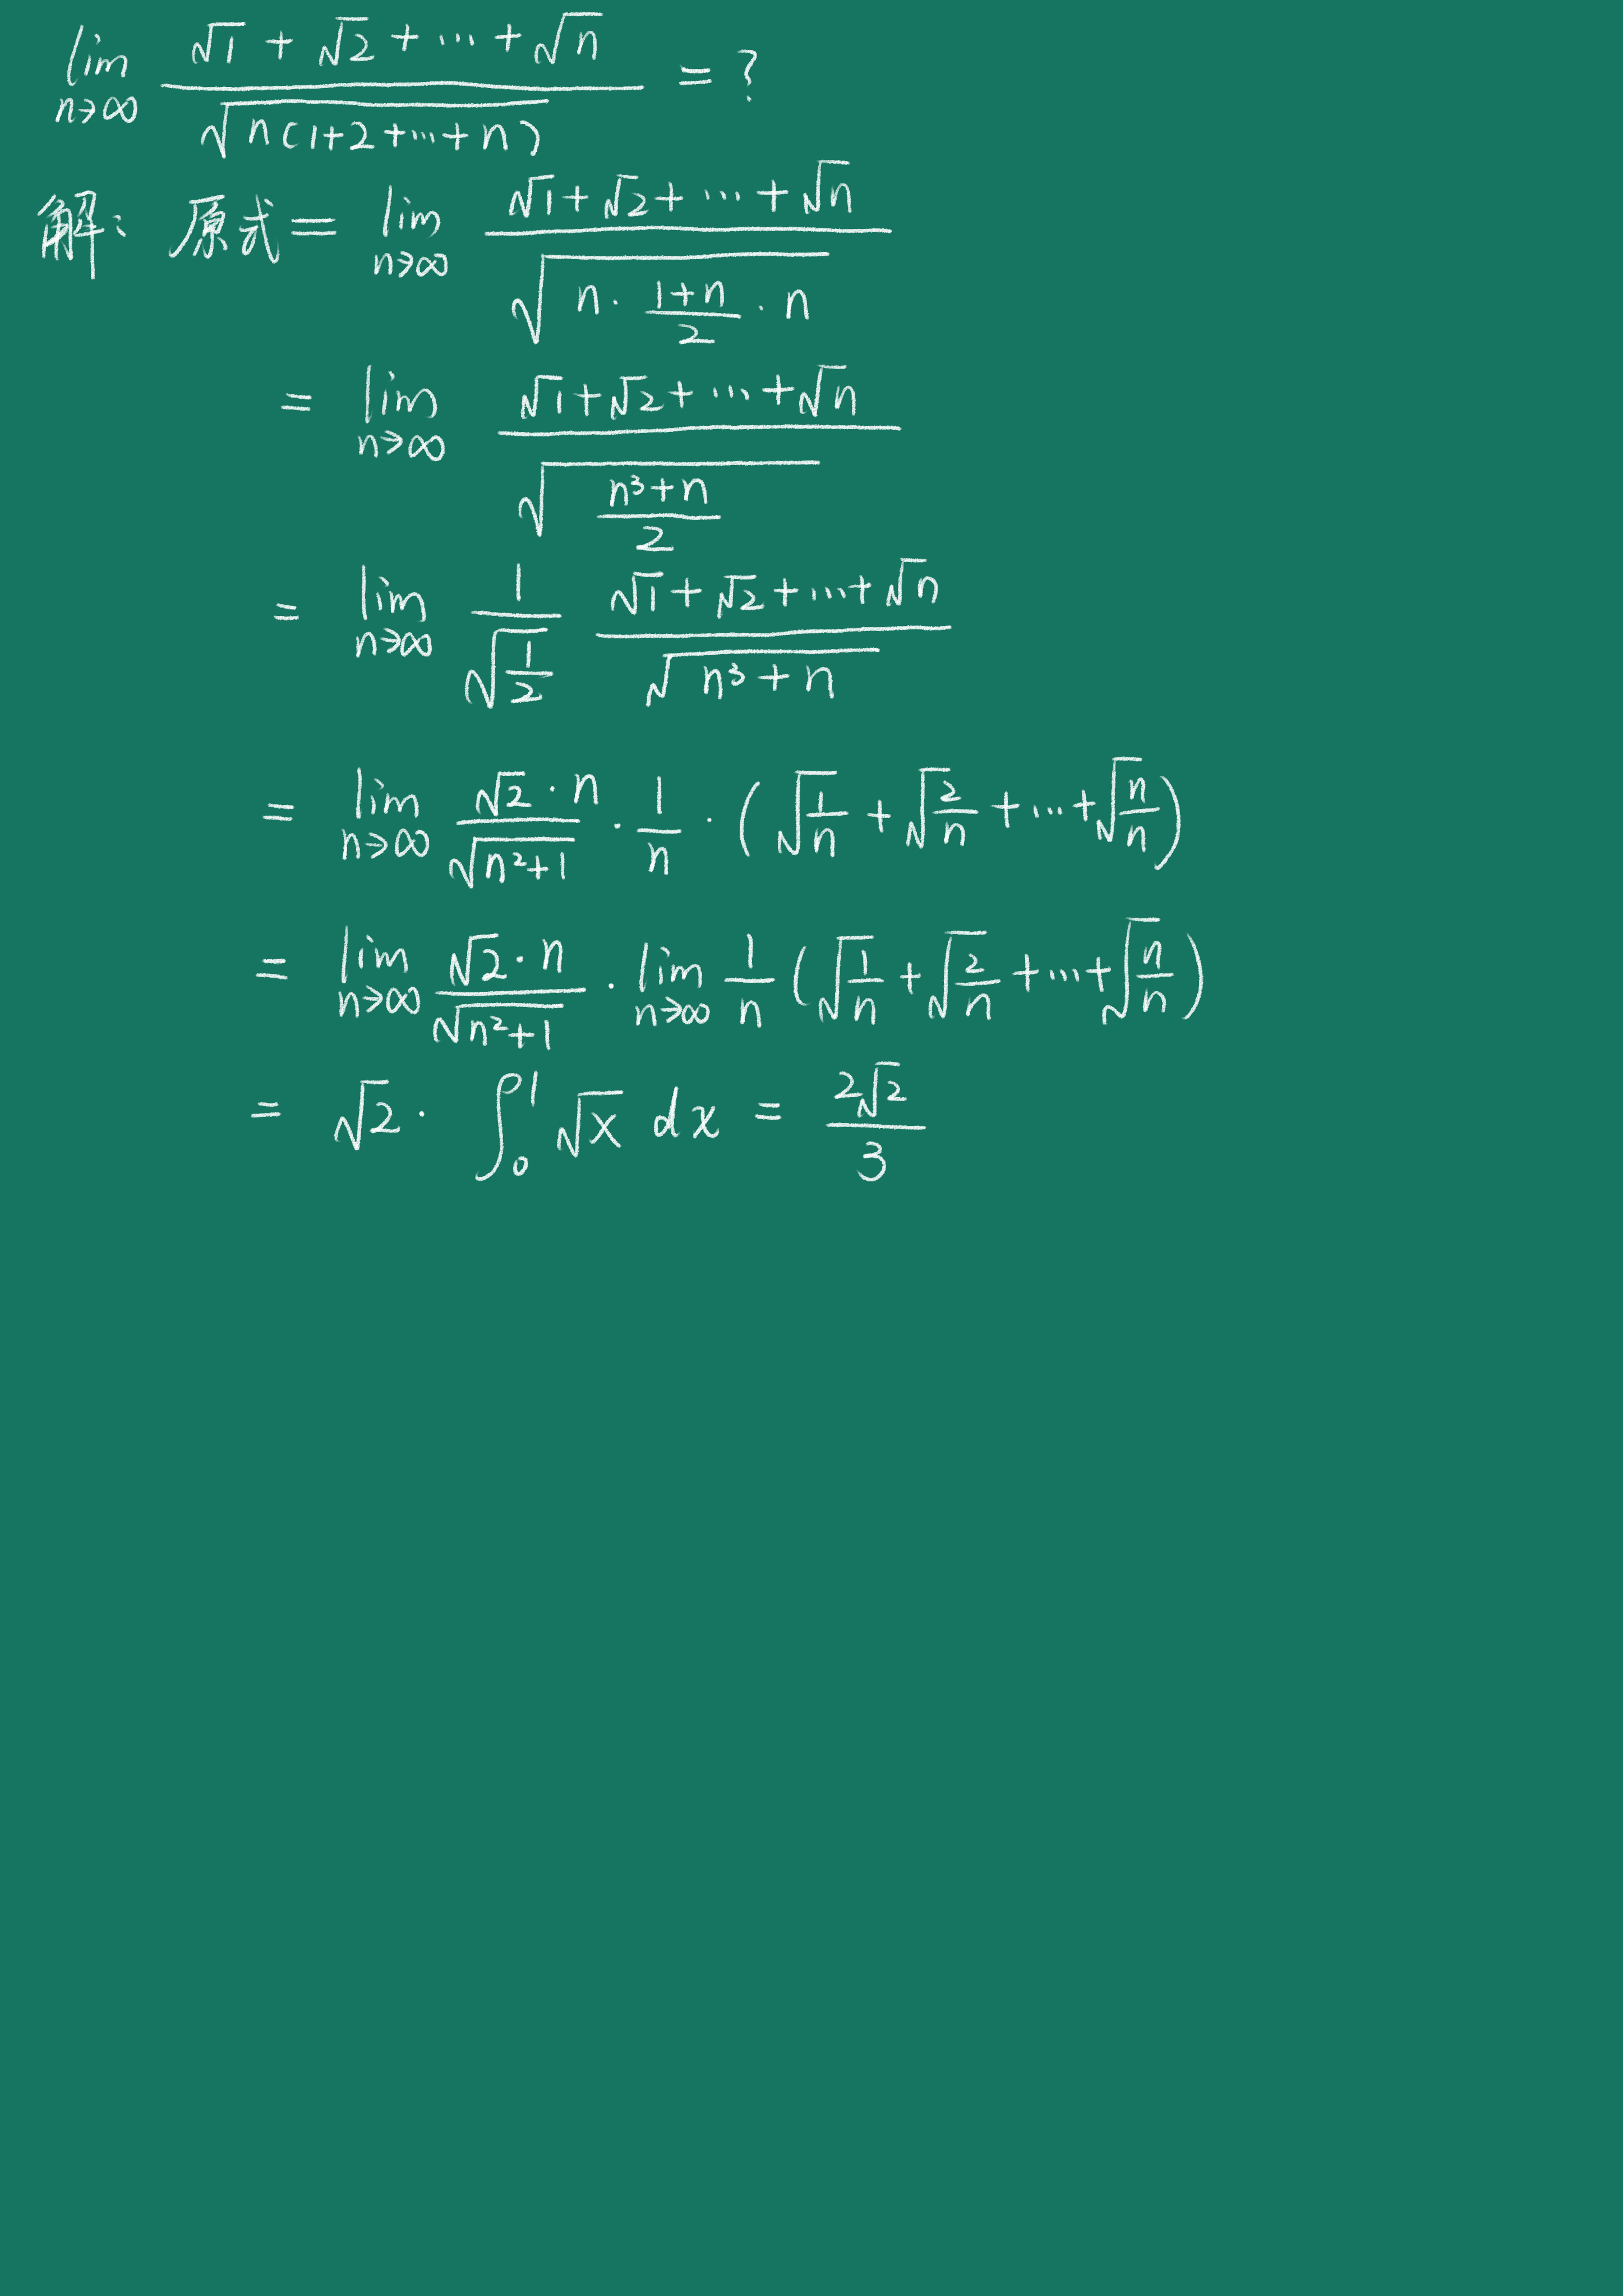 lim_{n→∞} (√1 + √2 + ⋯ + √n) / √(n(1+2+⋯+n)) = ?
解: 原式 = lim_{n→∞} (√1 + √2 + ⋯ + √n) / √(n · (1+n)/2 · n)
= lim_{n→∞} (√1 + √2 + ⋯ + √n) / √((n³+n)/2)
= lim_{n→∞} 1/√(1/2) (√1 + √2 + ⋯ + √n) / √(n³+n)
= lim_{n→∞} (√2 · n)/√(n²+1) · 1/n · (√(1/n) + √(2/n) + ⋯ + √(n/n))
= lim_{n→∞} (√2 · n)/√(n²+1) · lim_{n→∞} 1/n (√(1/n) + √(2/n) + ⋯ + √(n/n))
= √2 · ∫₀¹ √x dx = 2√2/3